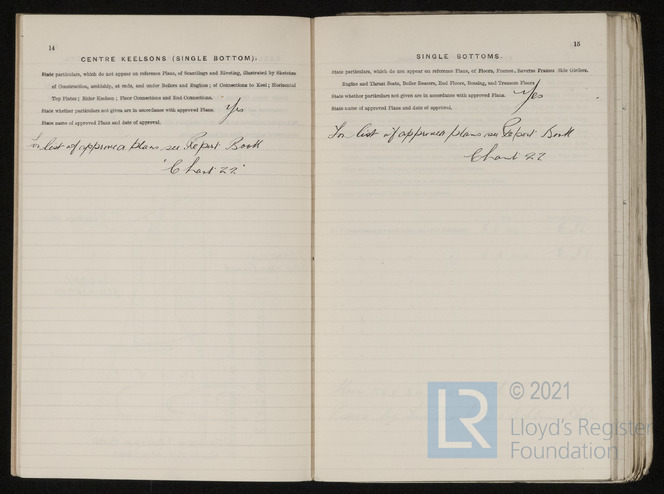 14
CENTRE KEELSONS (SINGLE BOTTOM).
State particulars, which do not appear on reference Plans, of Scantlings and Riveting, illustrated by Sketches
of Construction, amidships, at ends, and under Boilers and Engines; of Connections to Keel; Horizontal
Top Plates; Rider Keelson; Floor Connections and End Connections.
State whether particulars not given are in accordance with approved Plans. Yes
State name of approved Plans and date of approval.
For list of approved plans see Report Book
"Chart 22"
15
SINGLE BOTTOMS.
State particulars, which do not appear on reference Plans, of Floors, Frames, Reverse Frames, Side Girders,
Engine and Thrust Seats, Boiler Bearers, End Floors, Bossing, and Transom Floors.
State whether particulars not given are in accordance with approved Plans. Yes
State name of approved Plans and date of approval.
For list of approved plans see Report Book
Chart 22
LR
© 2021
Lloyd's Register
Foundation